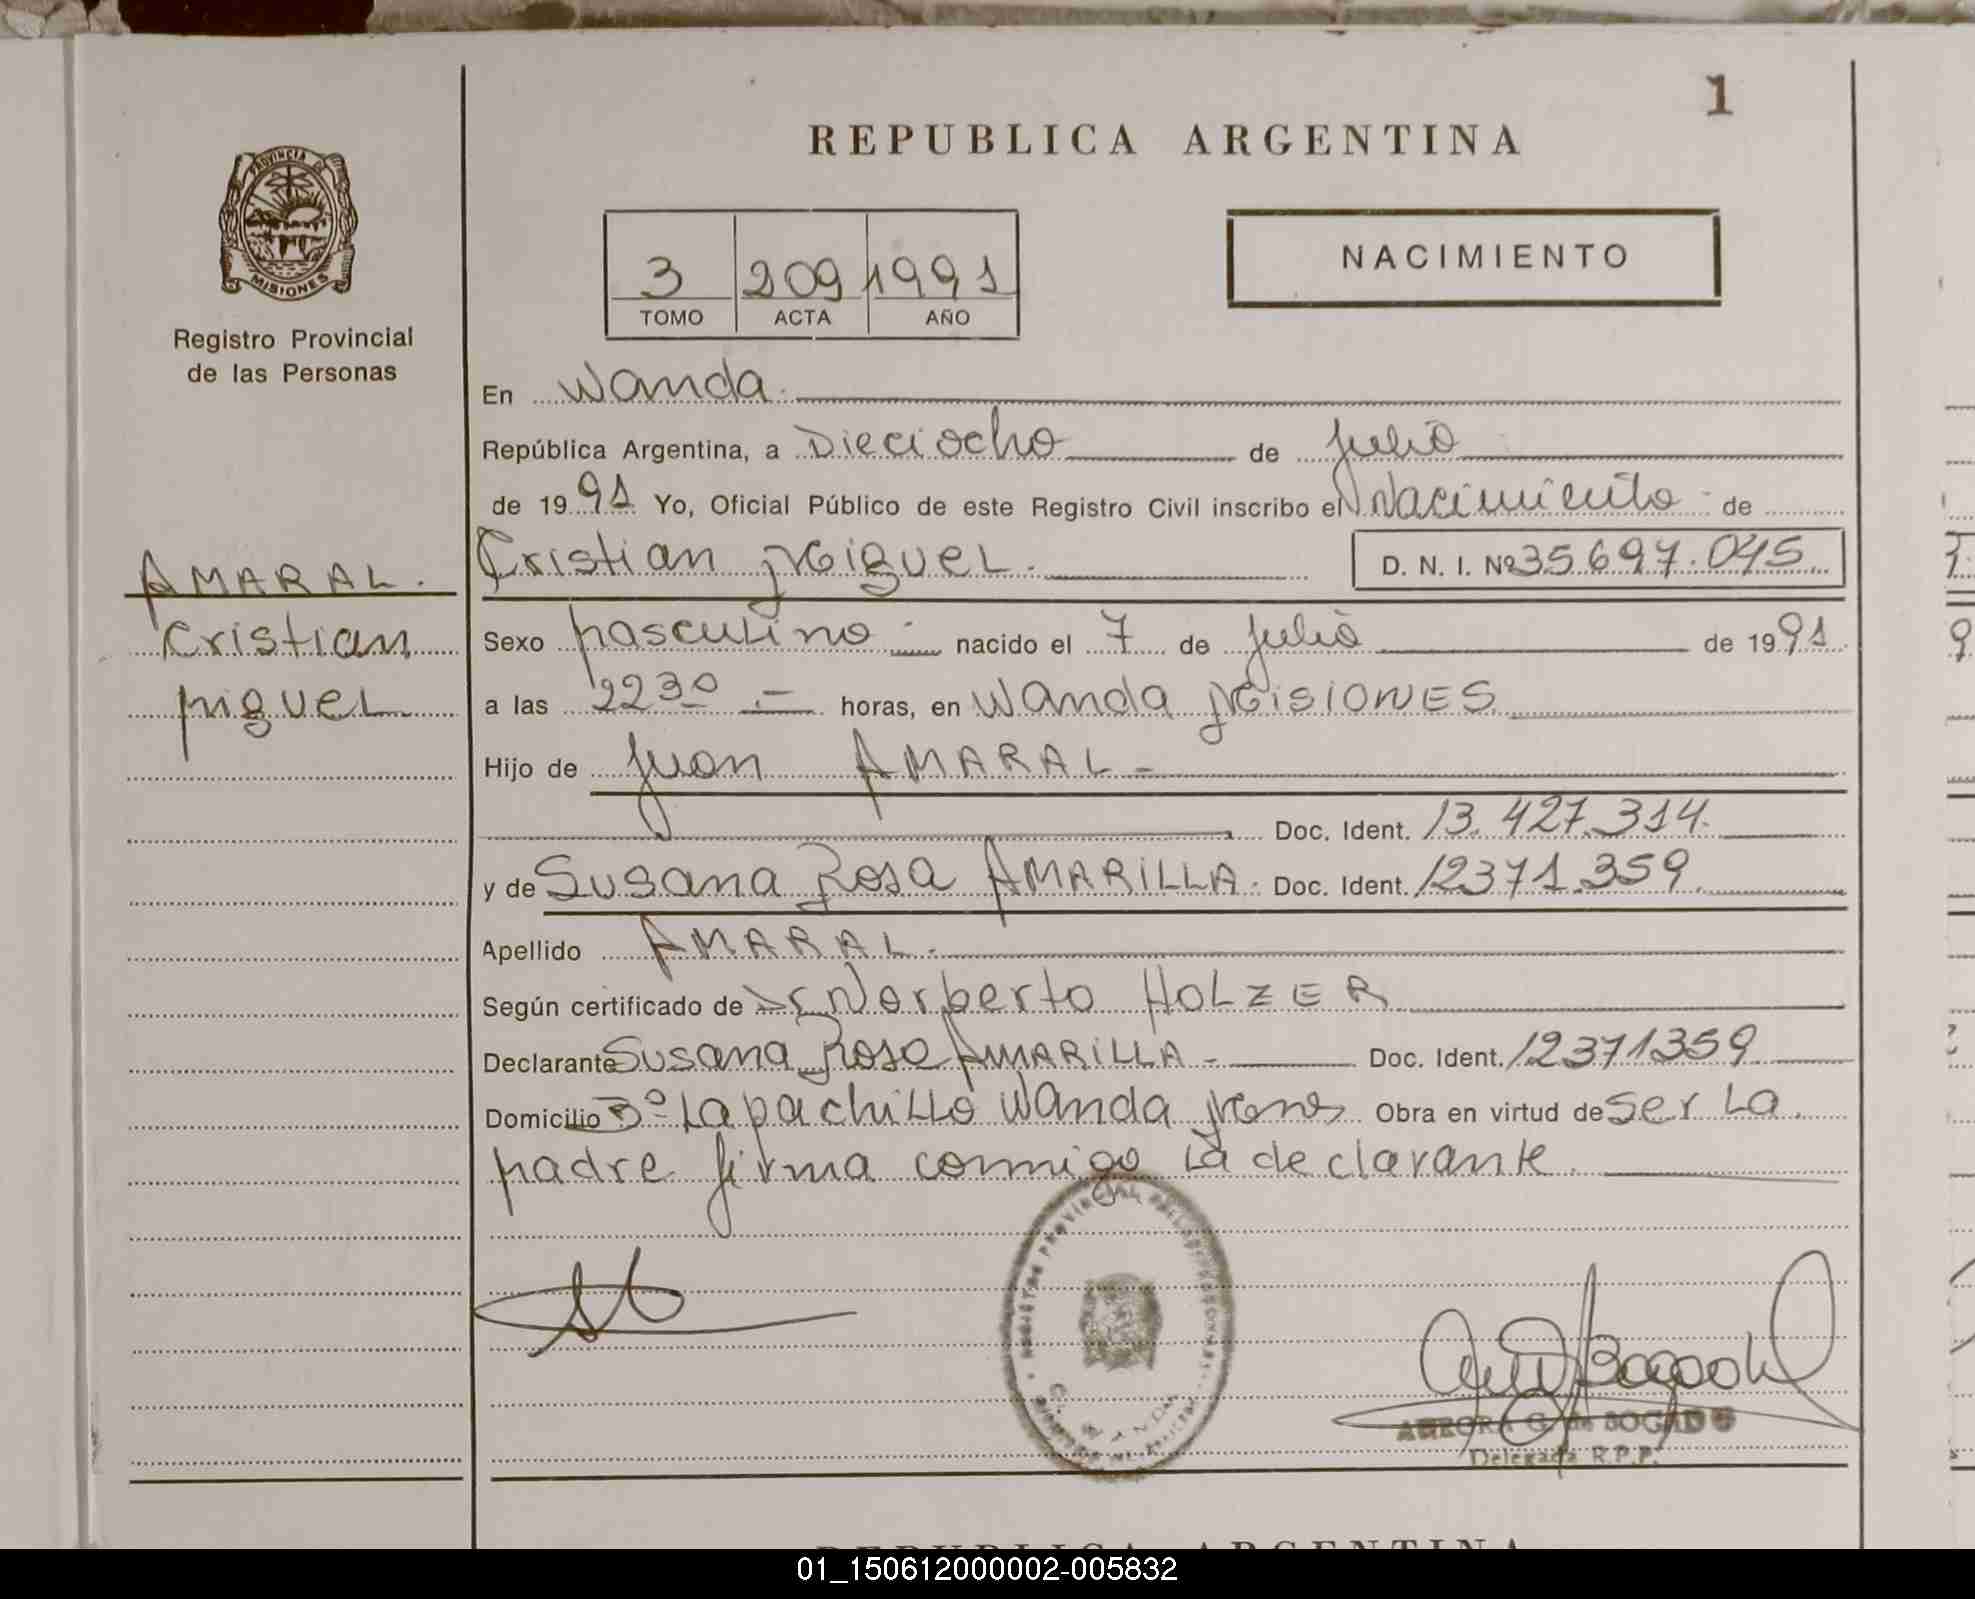 1
REPUBLICA ARGENTINA
PROVINCIA DE
MISIONES
Registro Provincial
de las Personas
NACIMIENTO
3 209 1991
TOMO ACTA AÑO
En Wanda.
República Argentina, a Dieciocho de julio
de 1991 Yo, Oficial Público de este Registro Civil inscribo el Nacimiento de
Cristian Miguel. D. N. I. Nº 35.697.045
AMARAL.
Cristian
Miguel
Sexo Masculino nacido el 7 de julio de 1991
a las 22 30 horas, en Wanda Misiones
Hijo de Juan AMARAL
Doc. Ident. 13.427.314.
y de Susana Rosa AMARILLA. Doc. Ident. 12371.359.
Apellido AMARAL.
Según certificado de Dr Norberto HOLZER
Declarante Susana Rosa AMARILLA Doc. Ident. 12371359
Domicilio Bº Lapachillo Wanda Mnes Obra en virtud de ser La
Madre firma conmigo La declarante.
REGISTRO PROVINCIAL DE LAS PERSONAS
WANDA
AURORA G. de BOGADO
Delegada R.P.P.
REPUBLICA ARGENTINA
01_150612000002-005832